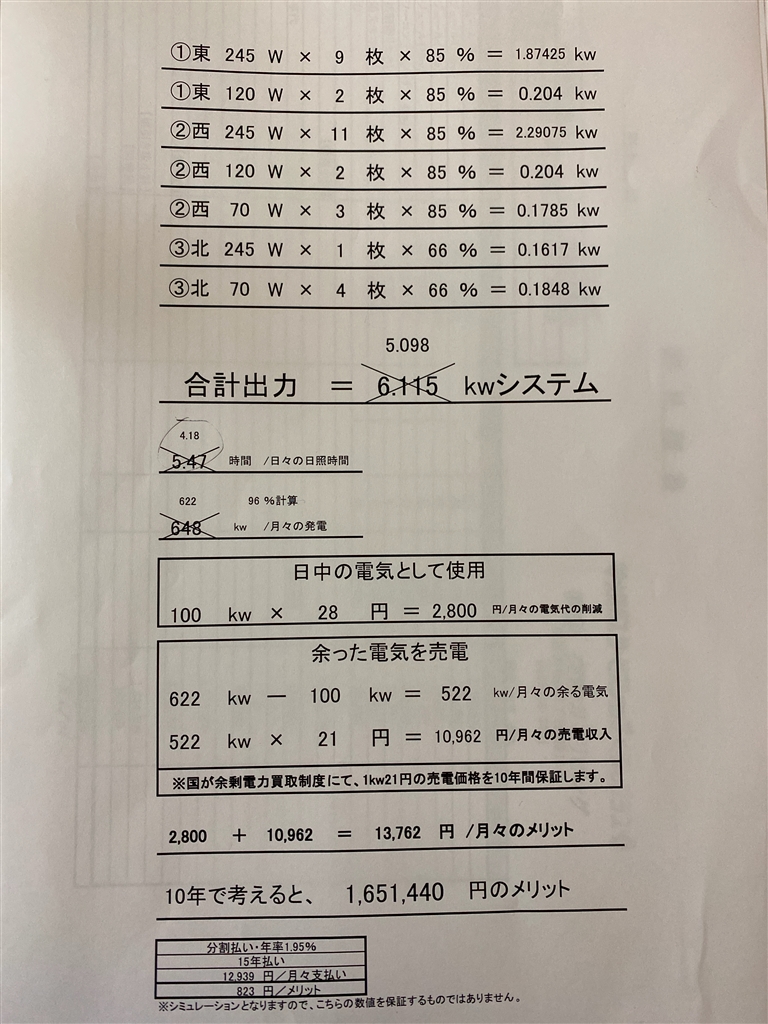 ①東 245 W × 9 枚 × 85 % = 1.87425 kw
①東 120 W × 2 枚 × 85 % = 0.204 kw
②西 245 W × 11 枚 × 85 % = 2.29075 kw
②西 120 W × 2 枚 × 85 % = 0.204 kw
②西 70 W × 3 枚 × 85 % = 0.1785 kw
③北 245 W × 1 枚 × 66 % = 0.1617 kw
③北 70 W × 4 枚 × 66 % = 0.1848 kw
5.098
合計出力 = 6.115 kwシステム
4.18
5.47 時間 /日々の日照時間
622 96 %計算
648 kw /月々の発電
日中の電気として使用
100 kw × 28 円 = 2,800 円/月々の電気代の削減
余った電気を売電
622 kw − 100 kw = 522 kw/月々の余る電気
522 kw × 21 円 = 10,962 円/月々の売電収入
※国が余剰電力買取制度にて、1kw21円の売電価格を10年間保証します。
2,800 + 10,962 = 13,762 円 /月々のメリット
10年で考えると、 1,651,440 円のメリット
分割払い・年率1.95%
15年払い
12,939 円/月々支払い
823 円/メリット
※シミュレーションとなりますので、こちらの数値を保証するものではありません。